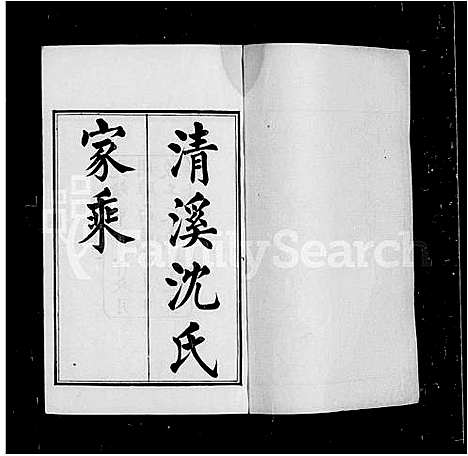 清溪沈氏
家乘
FamilySearch